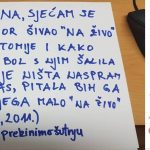 NA, SJEĆAM SE
OR ŠIVAO "NA ŽIVO"
TOMIJE I KAKO
BOL S NJIM ŠALILA
JE NIŠTA NASPRAM
AS, PITALA BIH GA
JEGA MALO "NA ŽIVO"
, 2011.)
prekinimo šutnju